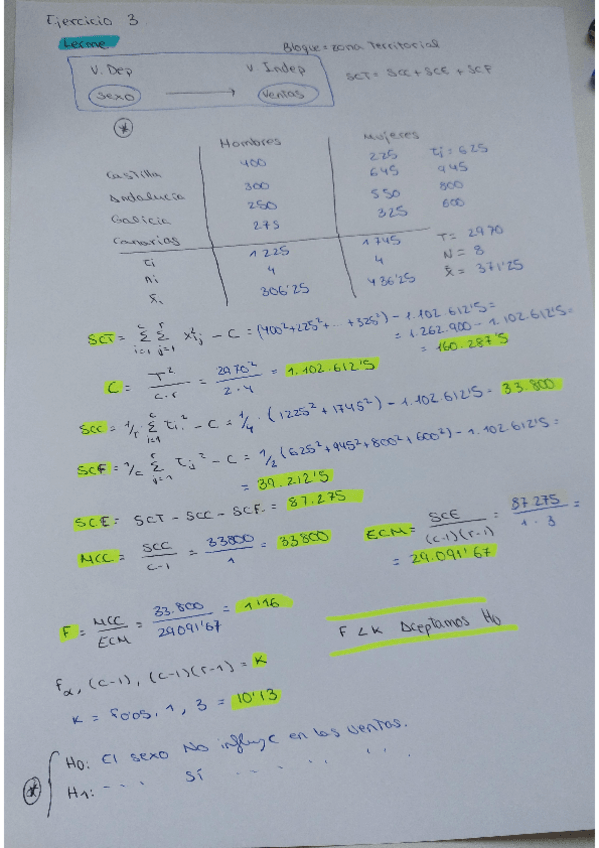 Ejercicio 3
Lecme.
Bloque = zona Territorial
V. Dep V. Indep SCT = SCC + SCE + SCF
sexo → ventas
*
Hombres Mujeres
Castilla 400 225 Tj = 625
Andalucía 300 645 945
Galicia 250 550 800
Canarias 275 325 600
Ti 1225 1745 T = 2970
ni 4 4 N = 8
x̄i 306'25 436'25 x̄ = 371'25
SCT = Σ Σ x²ij - C = (400² + 225² + ... + 325²) - 1.102.612'5 =
= 1.262.900 - 1.102.612'5 =
= 160.287'5
C = T² / c·r = 2970² / 2·4 = 1.102.612'5
SCC = 1/r Σ Ti² - C = 1/4 · (1225² + 1745²) - 1.102.612'5 = 33.800
SCF = 1/c Σ Tj² - C = 1/2 (625² + 945² + 800² + 600²) - 1.102.612'5 =
= 39.212'5
SCE = SCT - SCC - SCF = 87.275
MCC = SCC / c-1 = 33800 / 1 = 33800
ECM = SCE / (c-1)(r-1) = 87275 / 1·3 =
= 29.091'67
F = MCC / ECM = 33.800 / 29091'67 = 1'16
F < K Aceptamos H0
Fα, (c-1), (c-1)(r-1) = K
K = F0'05, 1, 3 = 10'13
* H0: El sexo No influye en las ventas.
H1: - · · sí · · · · · ·